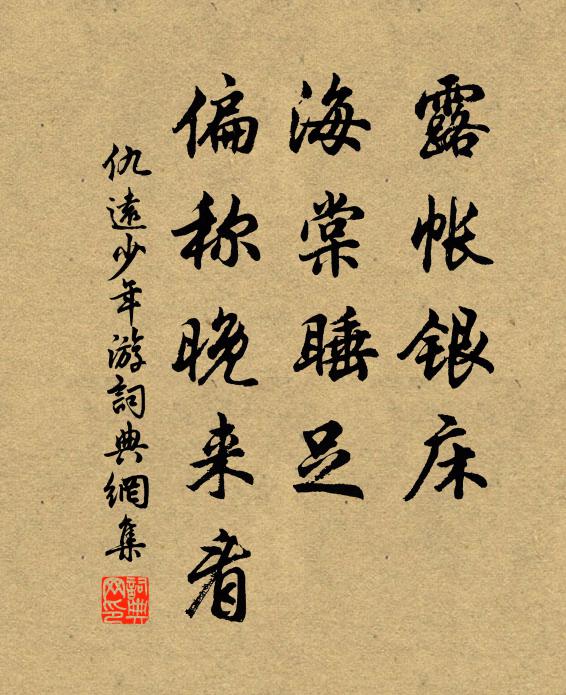 露帐银床
海棠睡足
偏称晚来看
仇遠少年游詞典網集
詞典网印